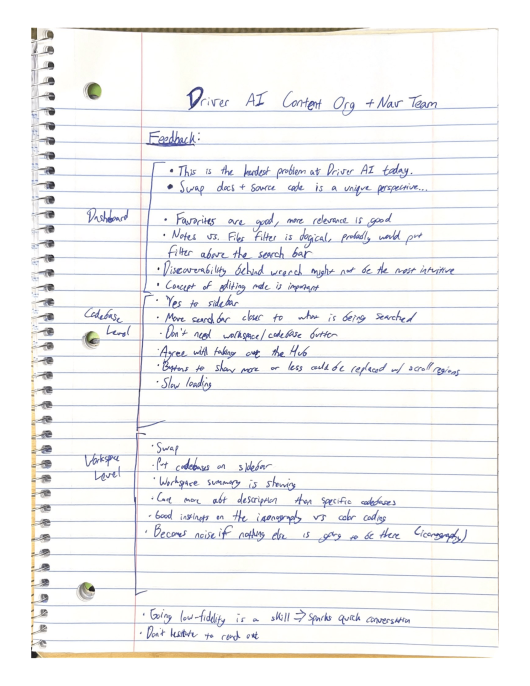 Driver AI Content Org + Nav Team
Feedback:
• This is the hardest problem at Driver AI today.
• Swap docs + source code is a unique perspective...
Dashboard
• Favorites are good, more relevance is good
• Notes vs. Files Filter is logical, probably would put
Filter above the search bar
• Discoverability behind search might not be the most intuitive
• Concept of editing mode is important
Codebase
Level
• Yes to sidebar
• Move search bar closer to what is being searched
• Don't need workspace/codebase button
• Agree with taking out the Hub
• Buttons to show more or less could be replaced w/ scroll regions
• Slow loading
Workspace
Level
• Swap
• Put codebases on sidebar
• Workspace summary is strong
• Care more abt description than specific codebases
• Good instincts on the iconography vs color coding
• Becomes noise if nothing else is going to be there (iconography)
• Going low-fidelity is a skill => sparks quick conversation
• Don't hesitate to reach out